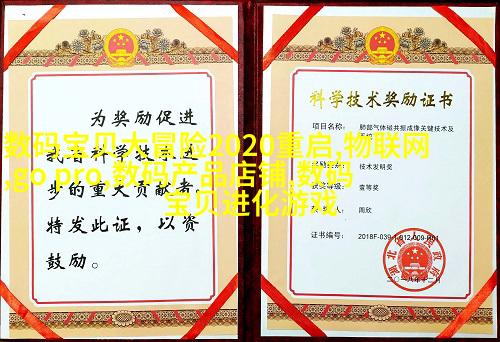 为奖励促进
我省科学技术进
步的重大贡献者，
特发此证，以资
鼓励。
数码宝贝大冒险2020重启,物联网
,go pro,数码产品店铺,数码
宝贝进化游戏
科学技术奖励证书
项目名称:肺部气体磁共振成像关键技术及
奖励类别: 技术发明奖
获奖等级: 壹等奖
周欣
证书编号: 2018F-039-1-012-009-R01
湖北省人民政府
二〇一八年十二月